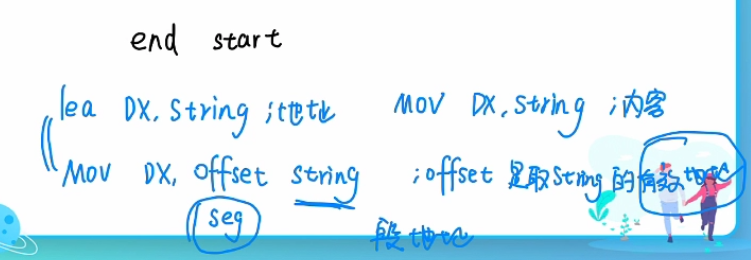 end start
lea DX, String ;地址 MOV DX, String ;内容
MOV DX, offset string ;offset 是取String的有效地址
seg 段地址